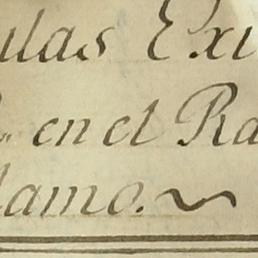 ulas Exi
en el Ra
lamo.